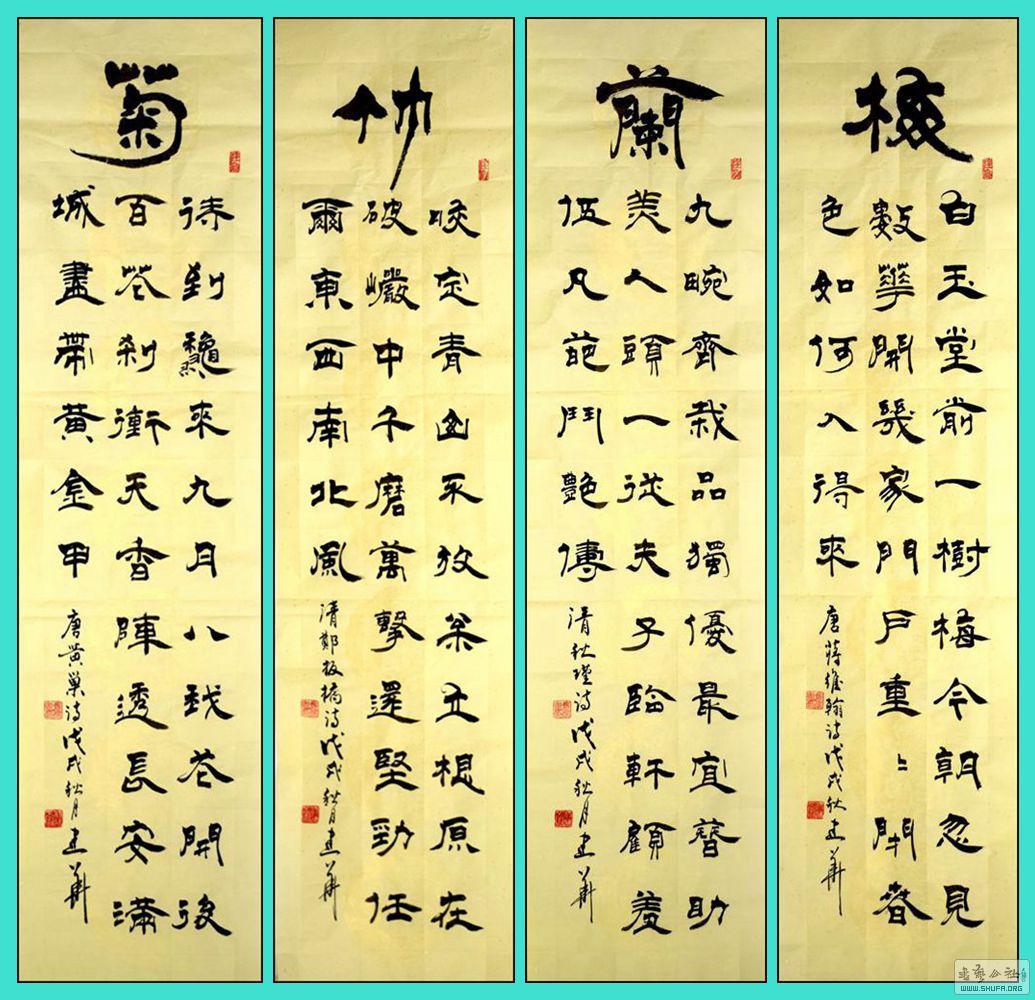 梅
白玉堂前一樹梅今朝忽見
數華開幾家門戶重〻閉春
色如何入得來
唐蔣維翰詩戊戌秋建華
蘭
九畹齊栽品獨優最宜簪助
美人頭一從夫子臨軒顧羞
伍凡葩鬥艷儔
清秋瑾詩戊戌秋月建華
竹
咬定青山不放枩立根原在
破巗中千磨萬擊還堅勁任
爾東西南北風
清鄭板橋詩戊戌秋月建華
菊
待到龝來九月八我花開後
百花刹衝天香陣透長安滿
城盡帶黃金甲
唐黃巢詩戊戌秋月建華
WWW.SHUFA.ORG